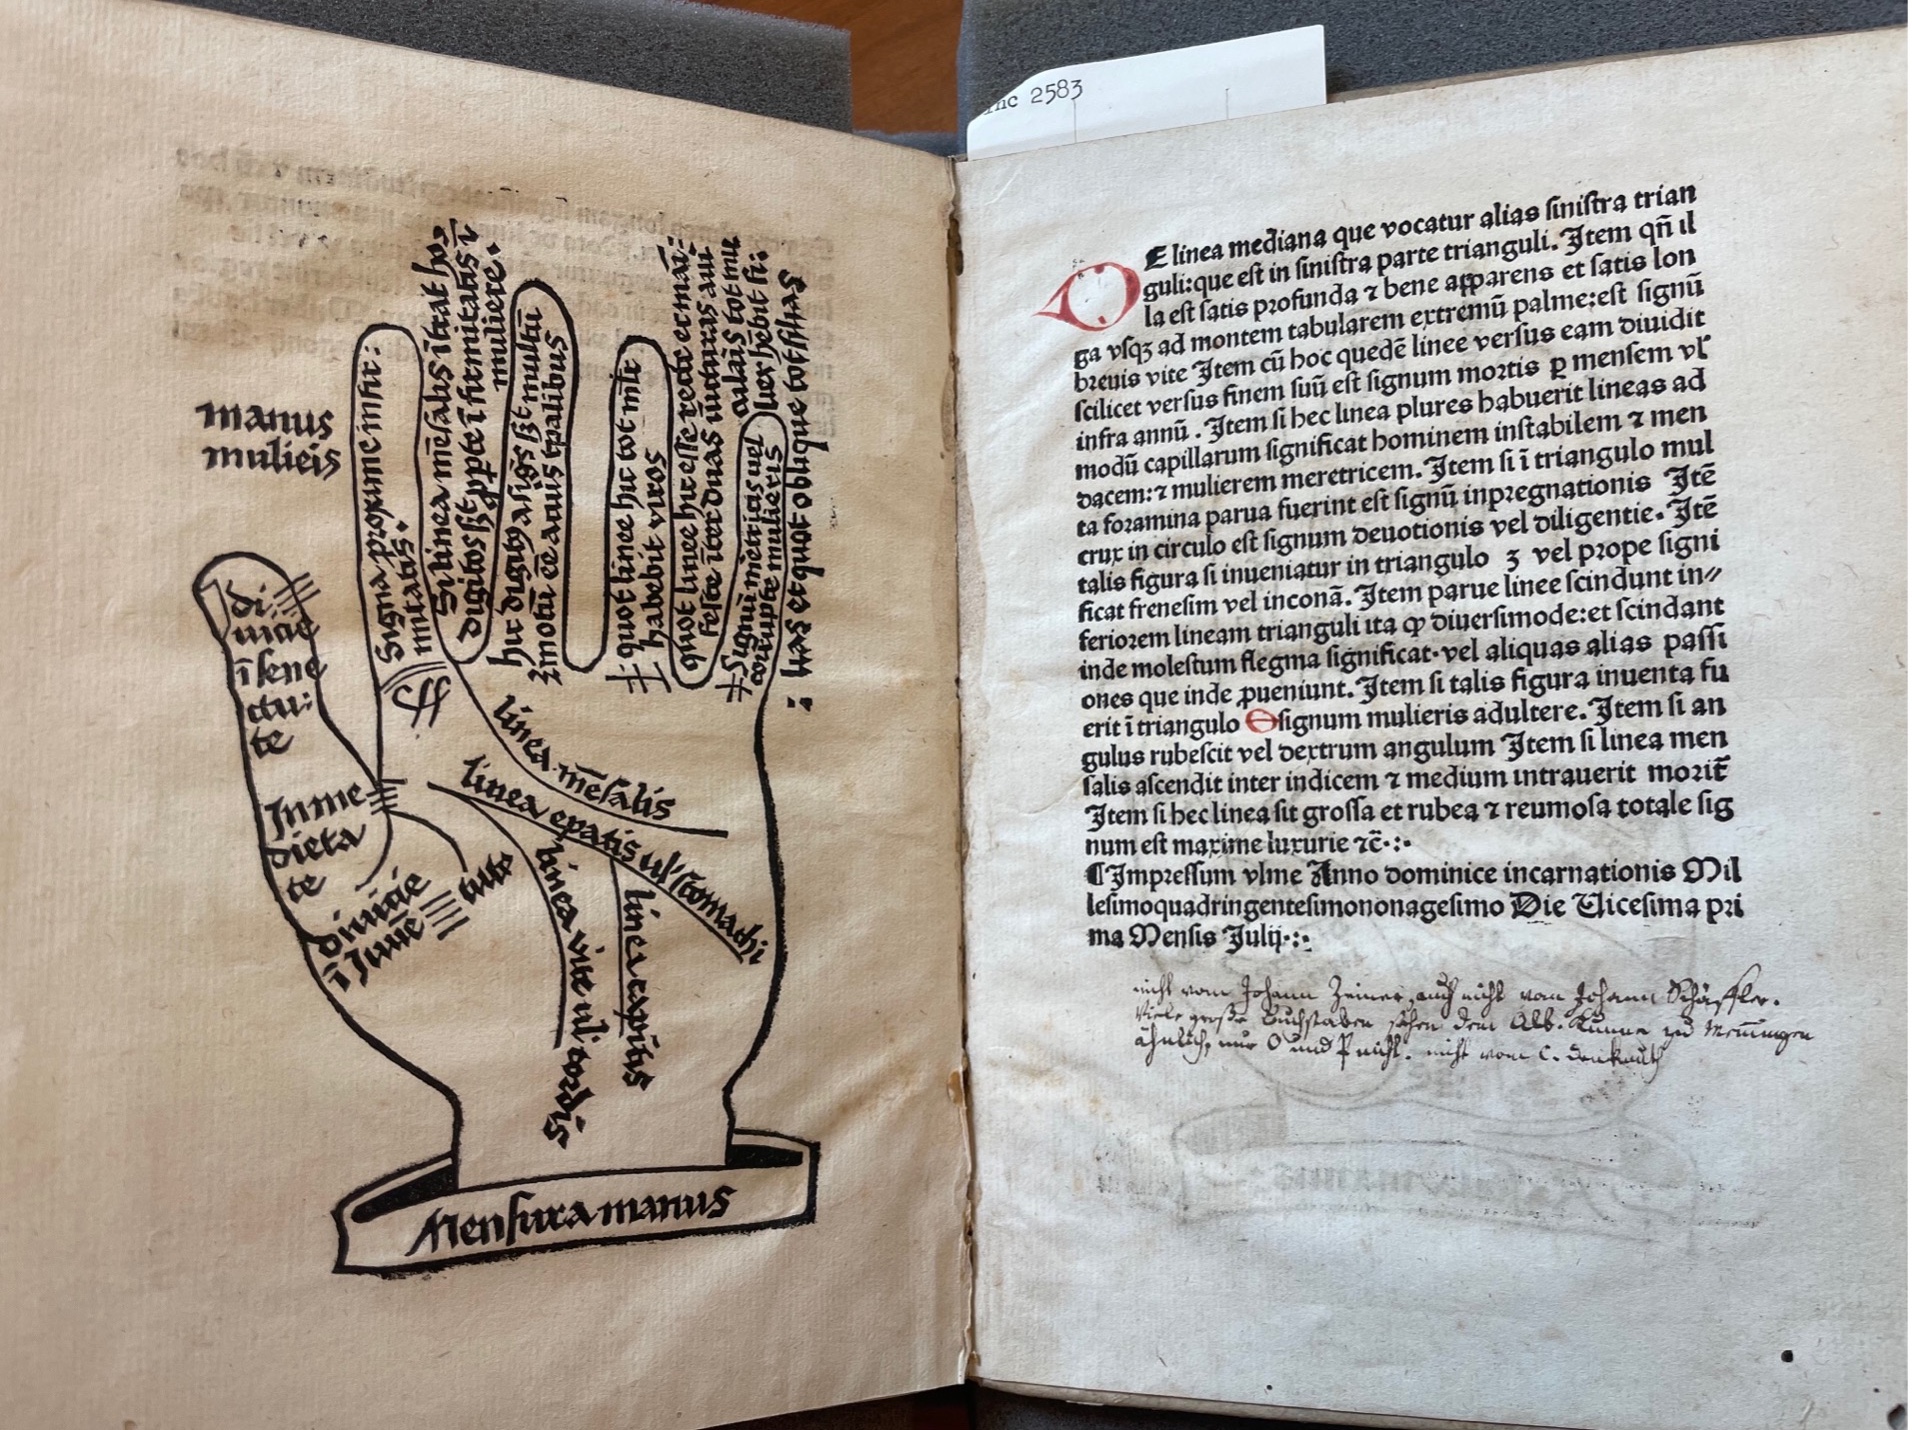 Inc 2583
manus
mulieis
Signa proxime infir:
mitatis.
Si linea mēsalis ītrat hos
digitos sīt ꝑpte ī firmitatis ī
muliere.
hic digitꝰ a sigs sīt multū
motū cē a aqis
quot linee hic tot
habebit viros
quot linee hic recte
inter duas iucturas
tot
Signū
corrupte mulieris
has et quot oblique tot filias
di:
uicie
ī sene
ctu:
te
In me
dieta
te
diuicie
ī Iuuē
tute
linea mēsalis
linea epatis ul' stomachi
linea vite ul' cordis
linea capitis
Mensura manus
DE linea mediana que vocatur alias sinistra trian
guli:que est in sinistra parte trianguli. Item qñ il
la est satis profunda ⁊ bene apparens et satis lon
ga vsqꝫ ad montem tabularem extremū palme:est signū
breuis vite Item cū hoc quedē linee versus eam diuidit
scilicet versus finem suū est signum mortis ꝑ mensem vl'
infra annū. Item si hec linea plures habuerit lineas ad
modū capillarum significat hominem instabilem ⁊ men
dacem:⁊ mulierem meretricem. Item si ī triangulo mul
ta foramina parua fuerint est signū inpregnationis Itē
crux in circulo est signum deuotionis vel diligentie. Itē
talis figura si inueniatur in triangulo ʒ vel prope signi
ficat frenesim vel inconā. Item parue linee scindunt in⸗
feriorem lineam trianguli ita ꝙ diuersimode:et scindant
inde molestum flegma significat·vel aliquas alias passi
ones que inde ꝓueniunt. Item si talis figura inuenta fu
erit ī triangulo Θ signum mulieris adultere. Item si an
gulus rubescit vel dextrum angulum Item si linea men
salis ascendit inter indicem ⁊ medium intrauerit morit̄
Item si hec linea sit grossa et rubea ⁊ reumosa totale sig
num est maxime luxurie ⁊c̄·:·
¶Impressum vlme Anno dominice incarnationis Mil
lesimoquadringentesimononagesimo Die Uicesima pri
ma Mensis Julij·:·
nicht vom Johann Zeiner, auch nicht vom Johann Schäffler.
Viele große Buchstaben sehen dem Alb. Kunne zu Memmingen
ähnlich, nur O und P nicht. nicht vom C. Denkmuth